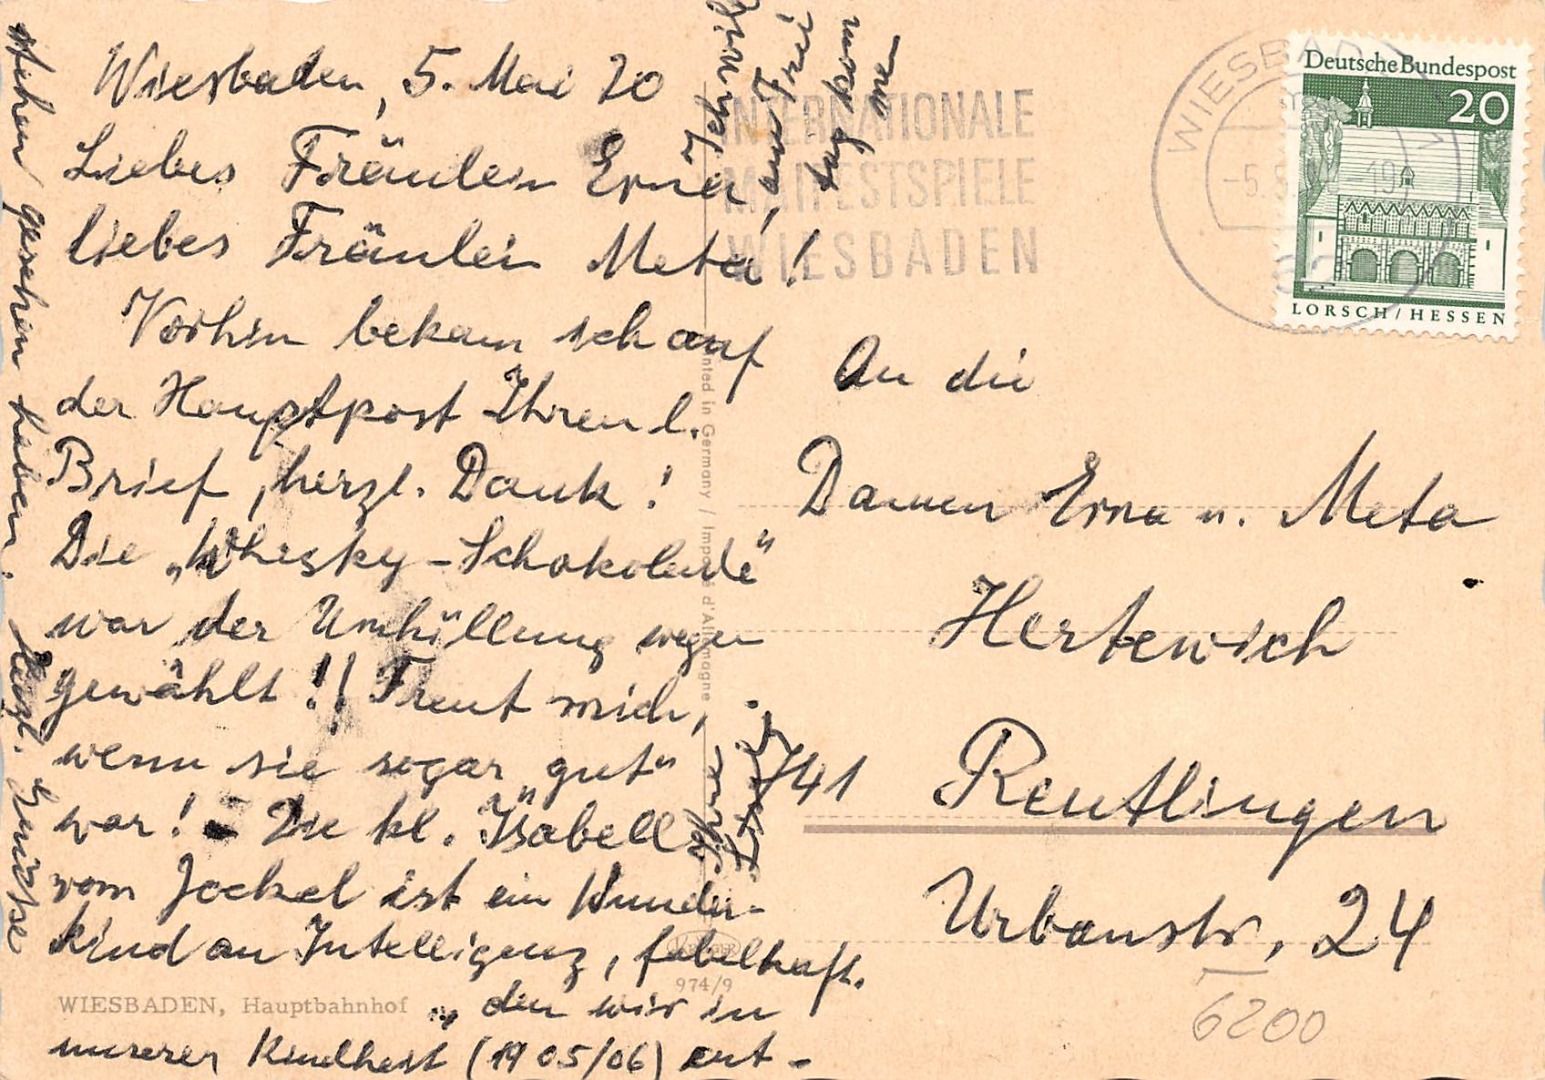 Wiesbaden, 5. Mai 70
Liebes Fräulein Erna,
liebes Fräulein Meta!
Vorhin bekam ich auf
der Hauptpost Ihren l.
Brief, herzl. Dank!
Die „Whisky-Schokolade"
war der Umhüllung wegen
gewählt!! Freut mich,
wenn sie sogar „gut"
war! - Die kl. Isabell
vom Jockel ist ein Wunder-
kind an Intelligenz, fabelhaft.
den wir in
unserer Kindheit (1905/06) ent-
stehen gesehen haben. Herzl. Grüsse
am Frei
tag kom
men
An die
Damen Erna u. Meta
Hertewich
741 Reutlingen
Urbanstr, 24
6200
WIESBADEN, Hauptbahnhof
974/9
Printed in Germany / Imprimé d'Allemagne
INTERNATIONALE
MAIFESTSPIELE
WIESBADEN
WIESBADEN 1
-5.5.
19
Deutsche Bundespost
20
LORSCH/HESSEN